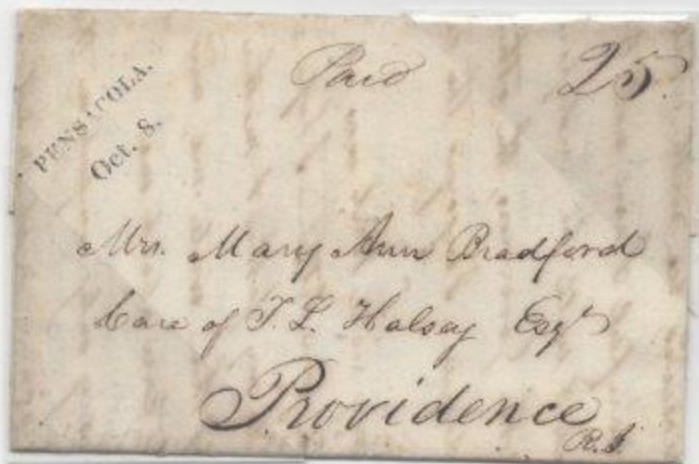 PENSACOLA.
Oct. 8.
Paid 25
Mrs. Mary Ann Bradford
Care of T. L. Halsey Esqr
Providence
R.I.